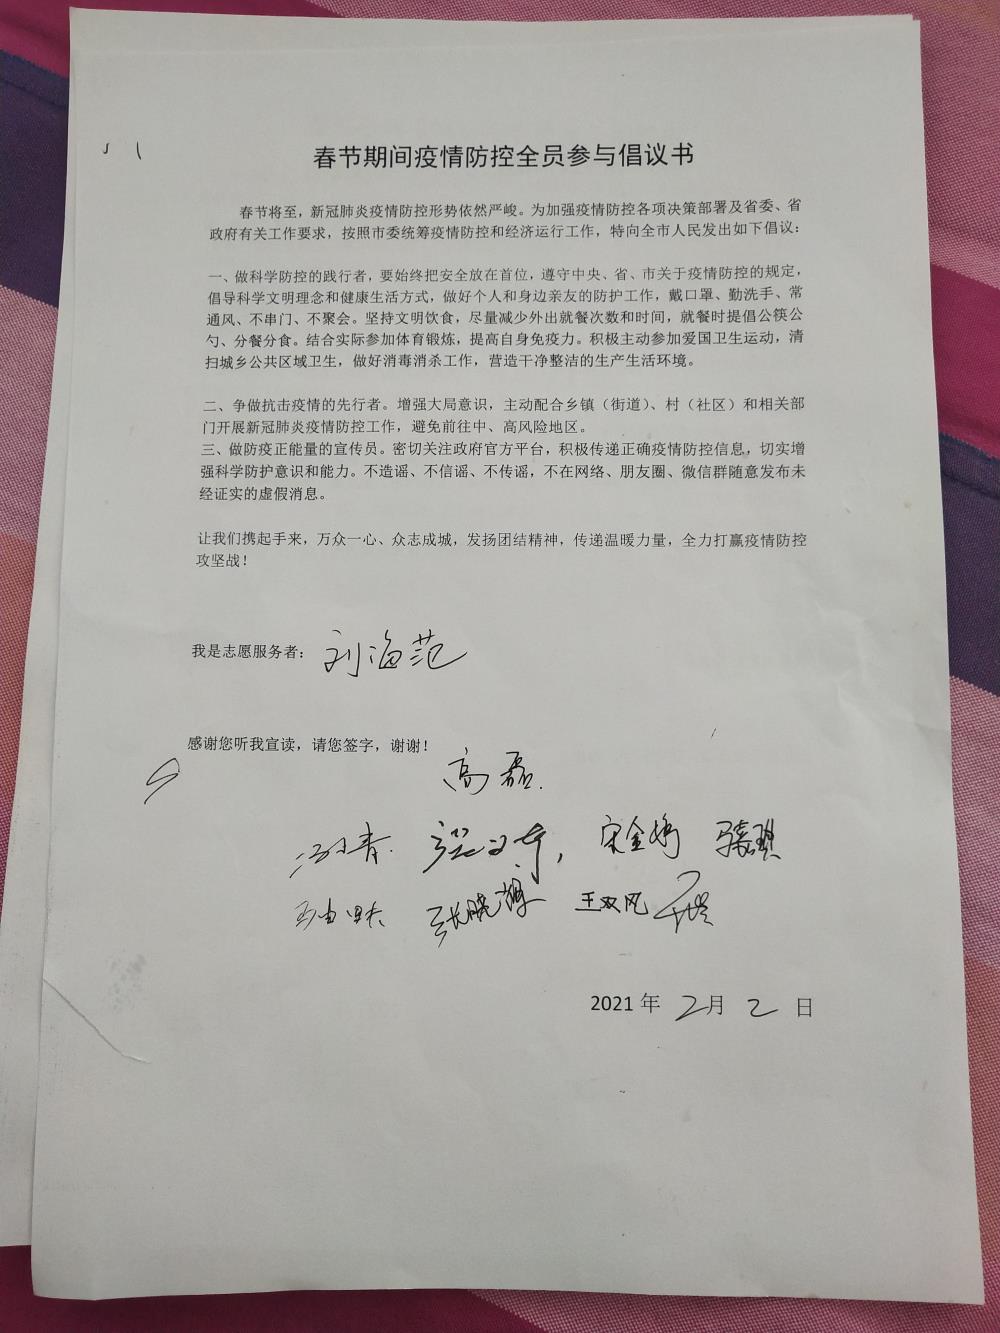 春节期间疫情防控全员参与倡议书
春节将至，新冠肺炎疫情防控形势依然严峻。为加强疫情防控各项决策部署及省委、省
政府有关工作要求，按照市委统筹疫情防控和经济运行工作，特向全市人民发出如下倡议：
一、做科学防控的践行者，要始终把安全放在首位，遵守中央、省、市关于疫情防控的规定，
倡导科学文明理念和健康生活方式，做好个人和身边亲友的防护工作，戴口罩、勤洗手、常
通风、不串门、不聚会。坚持文明饮食，尽量减少外出就餐次数和时间，就餐时提倡公筷公
勺、分餐分食。结合实际参加体育锻炼，提高自身免疫力。积极主动参加爱国卫生运动，清
扫城乡公共区域卫生，做好消毒消杀工作，营造干净整洁的生产生活环境。
二、争做抗击疫情的先行者。增强大局意识，主动配合乡镇（街道）、村（社区）和相关部
门开展新冠肺炎疫情防控工作，避免前往中、高风险地区。
三、做防疫正能量的宣传员。密切关注政府官方平台，积极传递正确疫情防控信息，切实增
强科学防护意识和能力。不造谣、不信谣、不传谣，不在网络、朋友圈、微信群随意发布未
经证实的虚假消息。
让我们携起手来，万众一心、众志成城，发扬团结精神，传递温暖力量，全力打赢疫情防控
攻坚战！
我是志愿服务者：刘海范
感谢您听我宣读，请您签字，谢谢！
高磊
宋金娟
王双风
2021年 2月 2 日